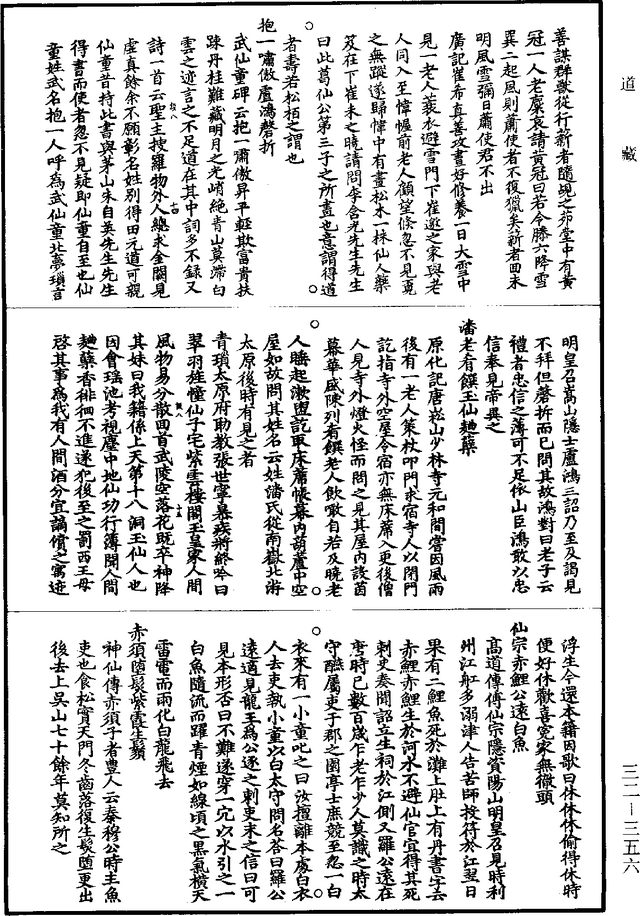 道藏
善謀群獸從行薪者隨覘之茆堂中有黃
冠一人老麋哀請黃冠曰若令滕六降雪
巽二起風則蕭使者不復獵矣薪者回未
明風雪彌日蕭使君不出
廣記崔希真善攻畫好修養一日大雪中
見一老人蓑衣避雪門下崔邀之家與老
人同入至幃幄前老人顧望倏忽不見覔
之無蹤遂歸幃中有畫松木一株仙人藥
芨在下崔未之曉請問李含光先生先生
曰此葛仙公第三子之所畫也意謂得道
者壽若松栢之謂也
抱一嘯傲盧鴻磬折
武仙童碑云抱一肅傲昇平輕欺富貴扶
踈丹桂難藏明月之光峭絶青山莫滯白
雲之迹言之不足道在其中詞多不録又
詩一首云聖主搜羅物外人緫求金闕見
虚真餘余不願彰名姓別得田元道可親
仙童昔持此書與茅山朱自英先生先生
得書而使者忽不見疑即仙童自至也仙
童姓武名抱一人呼為武仙童北夢瑣言
明皇召嵩山隱士盧鴻三詔乃至及謁見
不拜但磬折而已問其故鴻對曰老子云
禮者忠信之薄可不足依山臣鴻敢以忠
信奉見帝異之
潘老肴饌玉仙麯蘖
原化記唐嵩山少林寺元和間嘗因風雨
後有一老人策杖叩門求宿寺人以閉門
訖指寺外空屋令宿亦無床蓆入更後僧
人見寺外燈火怪而問之見其屋内設茵
幕華盛陳列有饌老人飲噉自若及曉老
人睡起漱盥訖取床蓆帳幕内葫蘆中空
屋如故問其姓名云姓潘氏從南嶽北游
太原後時有見之者
青瑣太原府助教張世寧暴疾將終吟曰
翠羽旌幢仙子宅紫雲樓閣玉皇家人間
風物易分散四首武陵空落花既卒神降
其妹曰我籍係上天第十八洞玉仙人也
因會瑶池考視塵中地仙功行簿聞人間
麯蘖香徘徊不進遂犯後至之罰西王母
啓其事為我有人間酒分宜謫償之寓迹
浮生今還本籍因歌曰休休休偷得休時
便好休歡喜寃家無徹頭
仙宗赤鯉公遠白魚
高道傳傅仙宗隱資陽山明皇召見時利
州江舡多溺津人告苦師投符於江翌日
果有二鯉魚死於灘上肚上有丹書字云
赤鯉赤鯉生於河水不避仙官宜得其死
刺史奏聞詔立生祠於江側又羅公遠在
唐時已數百歲乍老乍少人莫識之時太
守醮屬吏于郡之園亭士庶競至忽一白
衣來有一小童叱之曰汝擅離本處白衣
人去吏執小童以白太守問名荅曰羅公
遠適見龍王為公逐之刺吏未之信曰可
見本形否曰不難遂穿一穴以水引之一
白魚隨流而躍青煙如線頃之黑氣横天
雷電而雨化白龍飛去
赤須堕髮紫霞生鬚
神仙傳赤須子者豊人云秦穆公時主魚
吏也食松實天門冬齒落復生髮堕更出
後去上吴山七十餘年莫知所之
三二—三五六